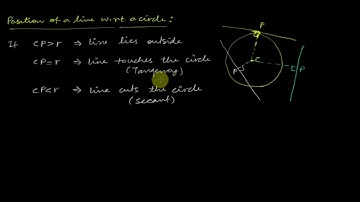 Position of a line w.r.t a circle:
If CP>r ⇒ line lies outside
CP=r ⇒ line touches the circle
(Tangency)
CP<r ⇒ line cuts the circle
(secant)
P
C
P
P